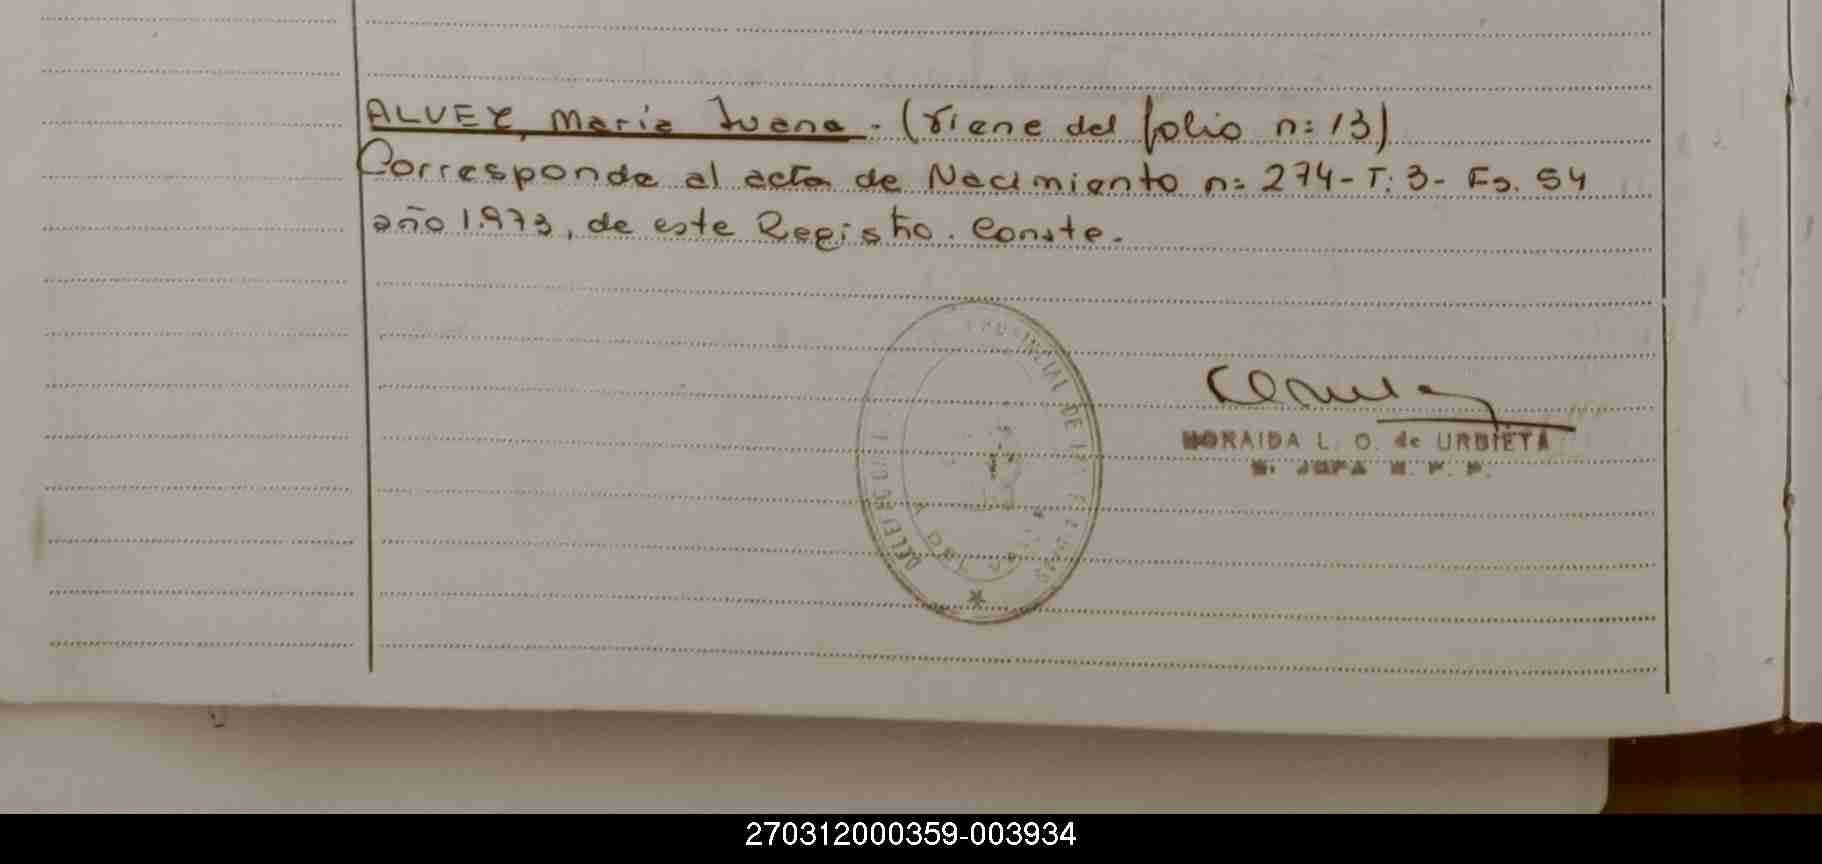 ALVEZ, Maria Juana. (Viene del folio n: 13)
Corresponde al acta de Nacimiento n: 274-T: 3- Fo. 54
año 1.973, de este Registro. Conste.
DELE
INCIAL DE
NORAIDA L. O. de URBIETA
270312000359-003934